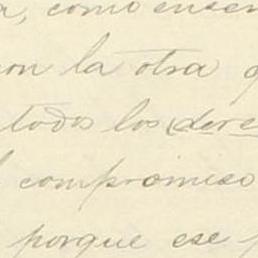 , como
con la otra
todos los
compromiso
porque ese